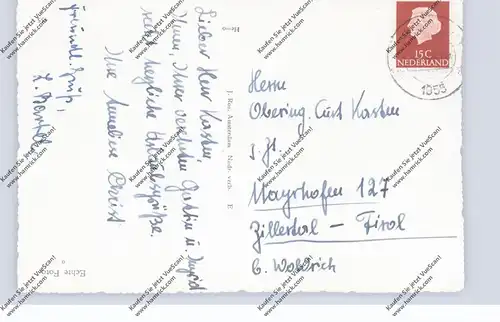 Lieber Herr Karsten
Ihnen, Ihrer verehrten Gattin u. Ingrid
recht herzliche Urlaubsgrüße.
Ihre Anneliese Christ
freundl. Gruß,
Herrn
Obering. Curt Karsten
z. Zt.
Mayrhofen 127
Zillertal – Tirol
b. Waldrich
15C
NEDERLAND
1955
J. Ruë, Amsterdam
Echte Foto
Kaufen Sie jetzt VueScan!
www.hamrick.com